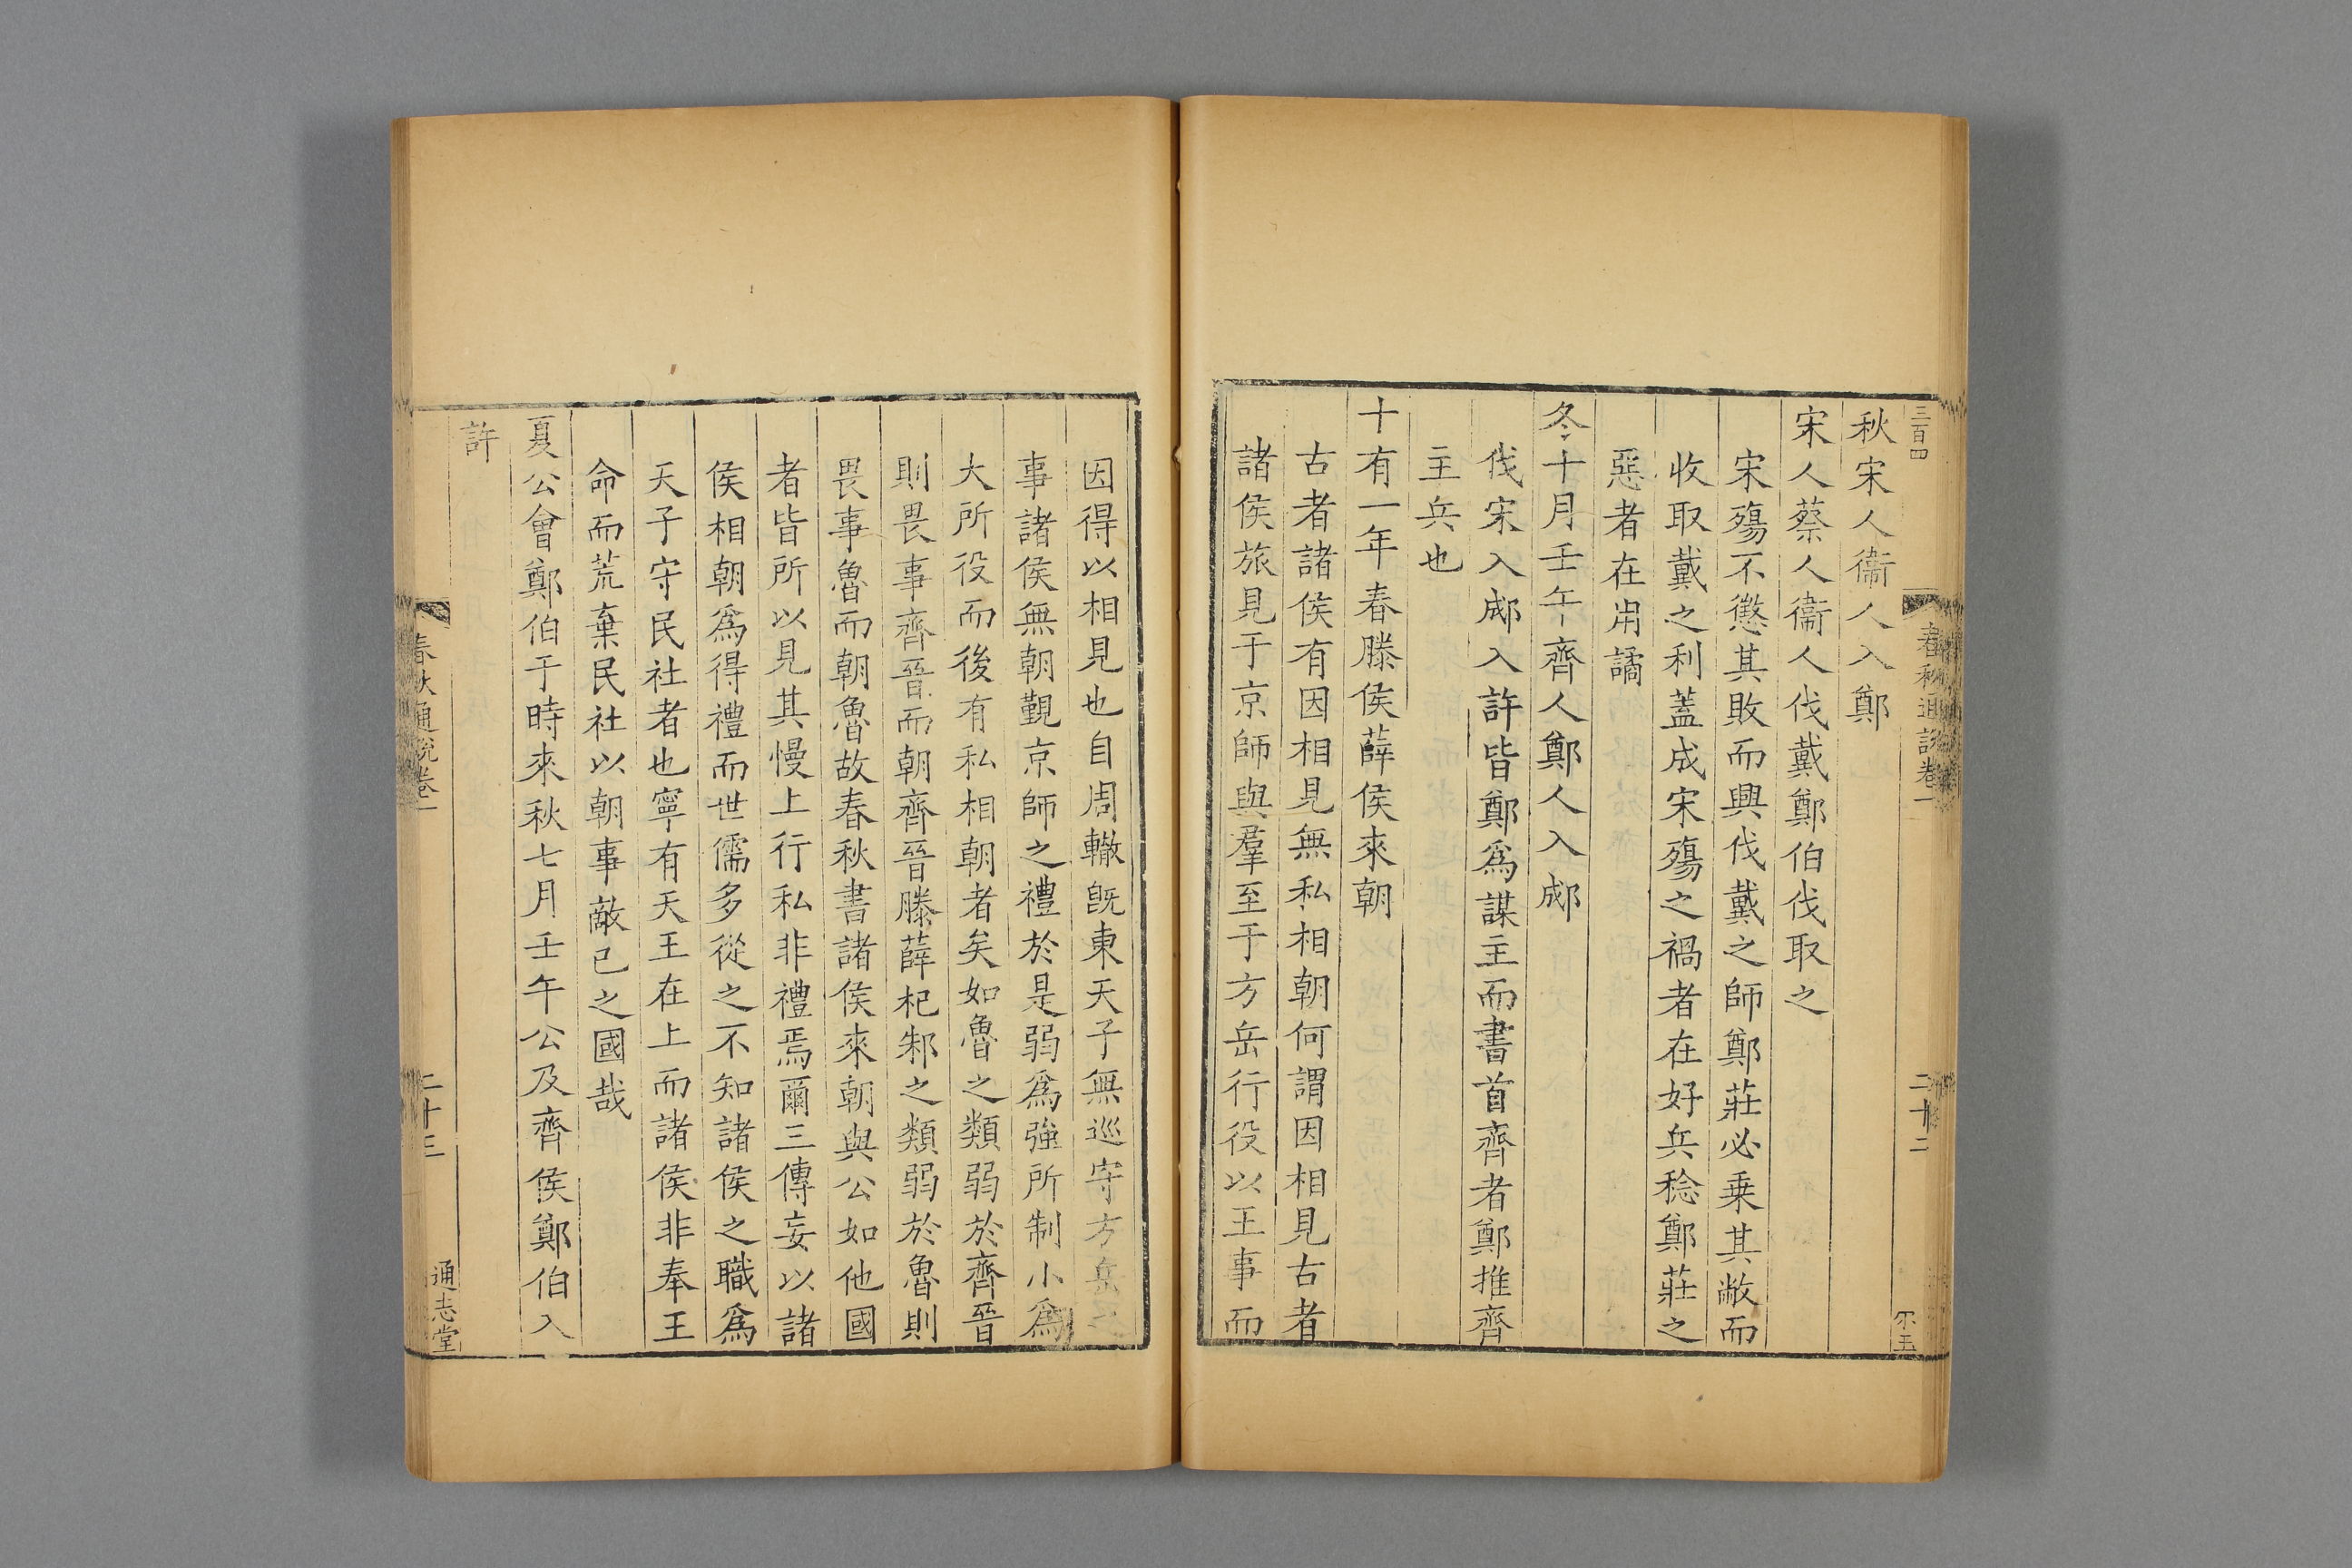 三百四
春秋通說卷一
二十二
秋宋人衞人入鄭
宋人蔡人衞人伐戴鄭伯伐取之
宋殤不懲其敗而興伐戴之師鄭莊必乗其敝而
收取戴之利蓋成宋殤之禍者在好兵稔鄭莊之
惡者在用譎
冬十月壬午齊人鄭人入郕
伐宋入郕入許皆鄭爲謀主而書首齊者鄭推齊
主兵也
十有一年春滕侯薛侯來朝
古者諸侯有因相見無私相朝何謂因相見古者
諸侯旅見于京師與羣至于方岳行役以王事而
因得以相見也自周轍旣東天子無巡守方岳之
事諸侯無朝覲京師之禮於是弱爲強所制小爲
大所役而後有私相朝者矣如魯之類弱於齊晉
則畏事齊晉而朝齊晉滕薛杞邾之類弱於魯則
畏事魯而朝魯故春秋書諸侯來朝與公如他國
者皆所以見其慢上行私非禮焉爾三傳妄以諸
侯相朝爲得禮而世儒多從之不知諸侯之職爲
天子守民社者也寧有天王在上而諸侯非奉王
命而荒棄民社以朝事敵已之國哉
夏公會鄭伯于時來秋七月壬午公及齊侯鄭伯入
許
春秋通說卷一
二十三
通志堂